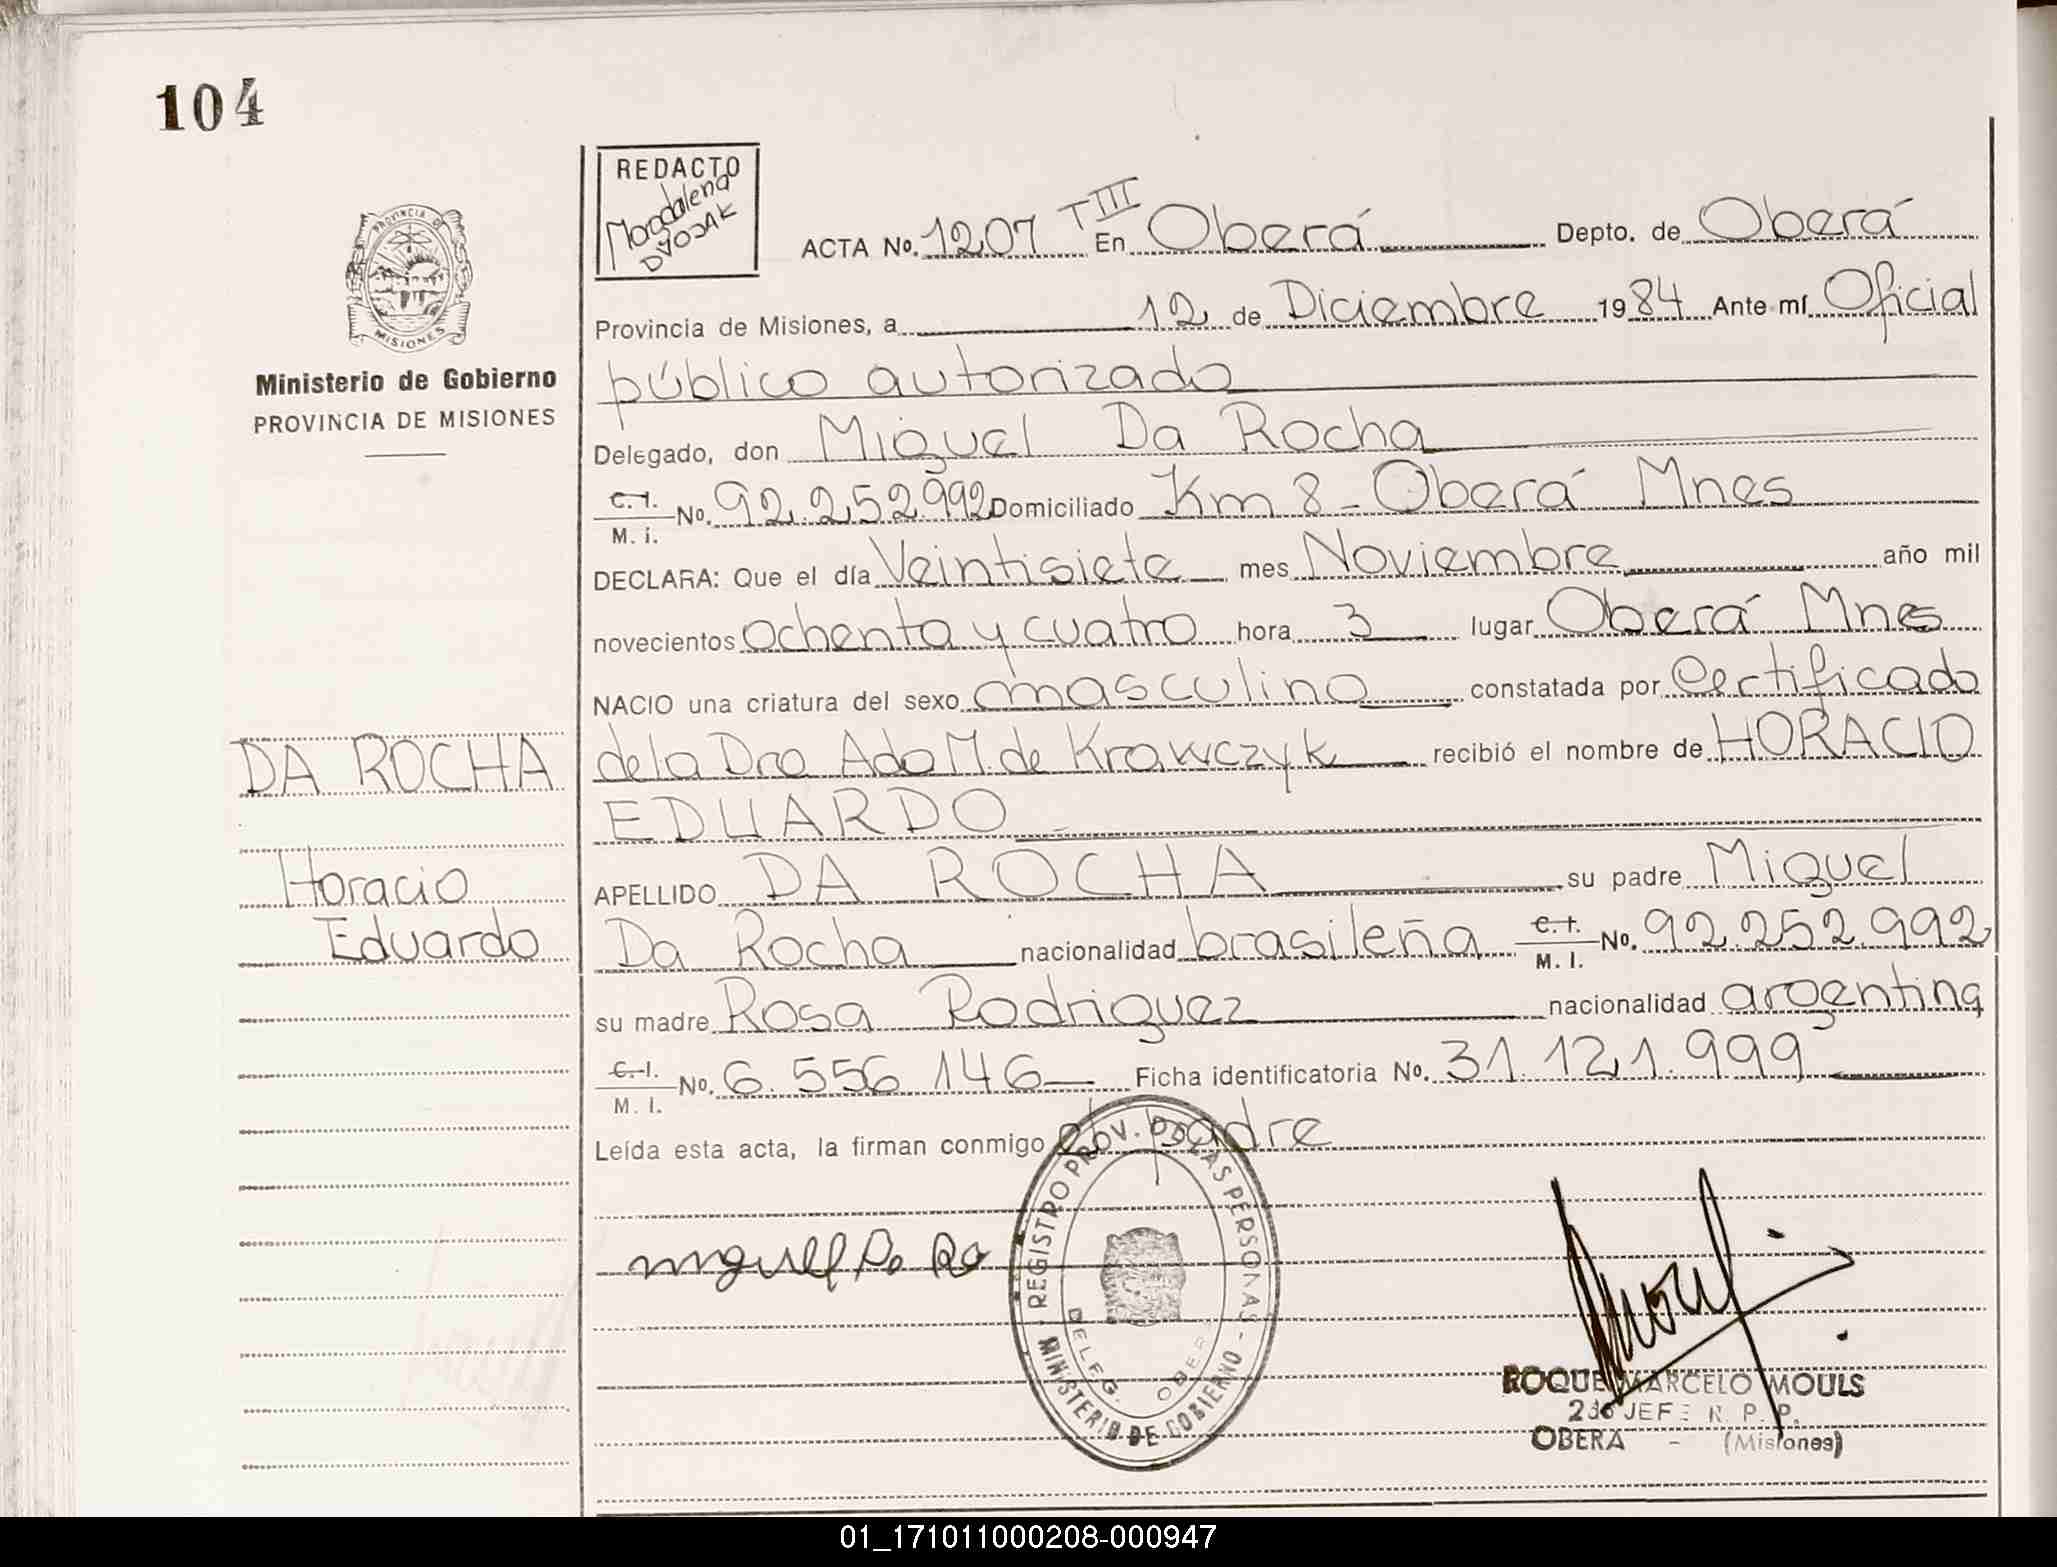 104
REDACTO
Magdalena
DVOJAK
PROVINCIA DE
MISIONES
Ministerio de Gobierno
PROVINCIA DE MISIONES
ACTA No. 1207 TIII En Oberá Depto. de Oberá
Provincia de Misiones, a 12 de Diciembre 1984 Ante mí Oficial
público autorizado
Delegado, don Miguel Da Rocha
C. I.
M. i. No. 92.252.992 Domiciliado Km 8 - Oberá Mnes
DECLARA: Que el día Veintisiete mes Noviembre año mil
novecientos ochenta y cuatro hora 3 lugar Oberá Mnes
NACIO una criatura del sexo masculino constatada por Certificado
DA ROCHA
de la Dra Ada M. de Krawczyk recibió el nombre de HORACIO
EDUARDO
Horacio
Eduardo
APELLIDO DA ROCHA su padre Miguel
Da Rocha nacionalidad brasileña C. I.
M. I. No. 92.252.992
su madre Rosa Rodriguez nacionalidad argentina
C. I.
M. I. No. 6.556.146 Ficha identificatoria No. 31.121.999
Leída esta acta, la firman conmigo el padre
miguel Da Ro
REGISTRO PROV. DE LAS PERSONAS - MINISTERIO DE GOBIERNO
DELEG. OBERA
ROQUE MARCELO MOULS
2do JEFE R. P. P.
OBERA - (Misiones)
01_171011000208-000947